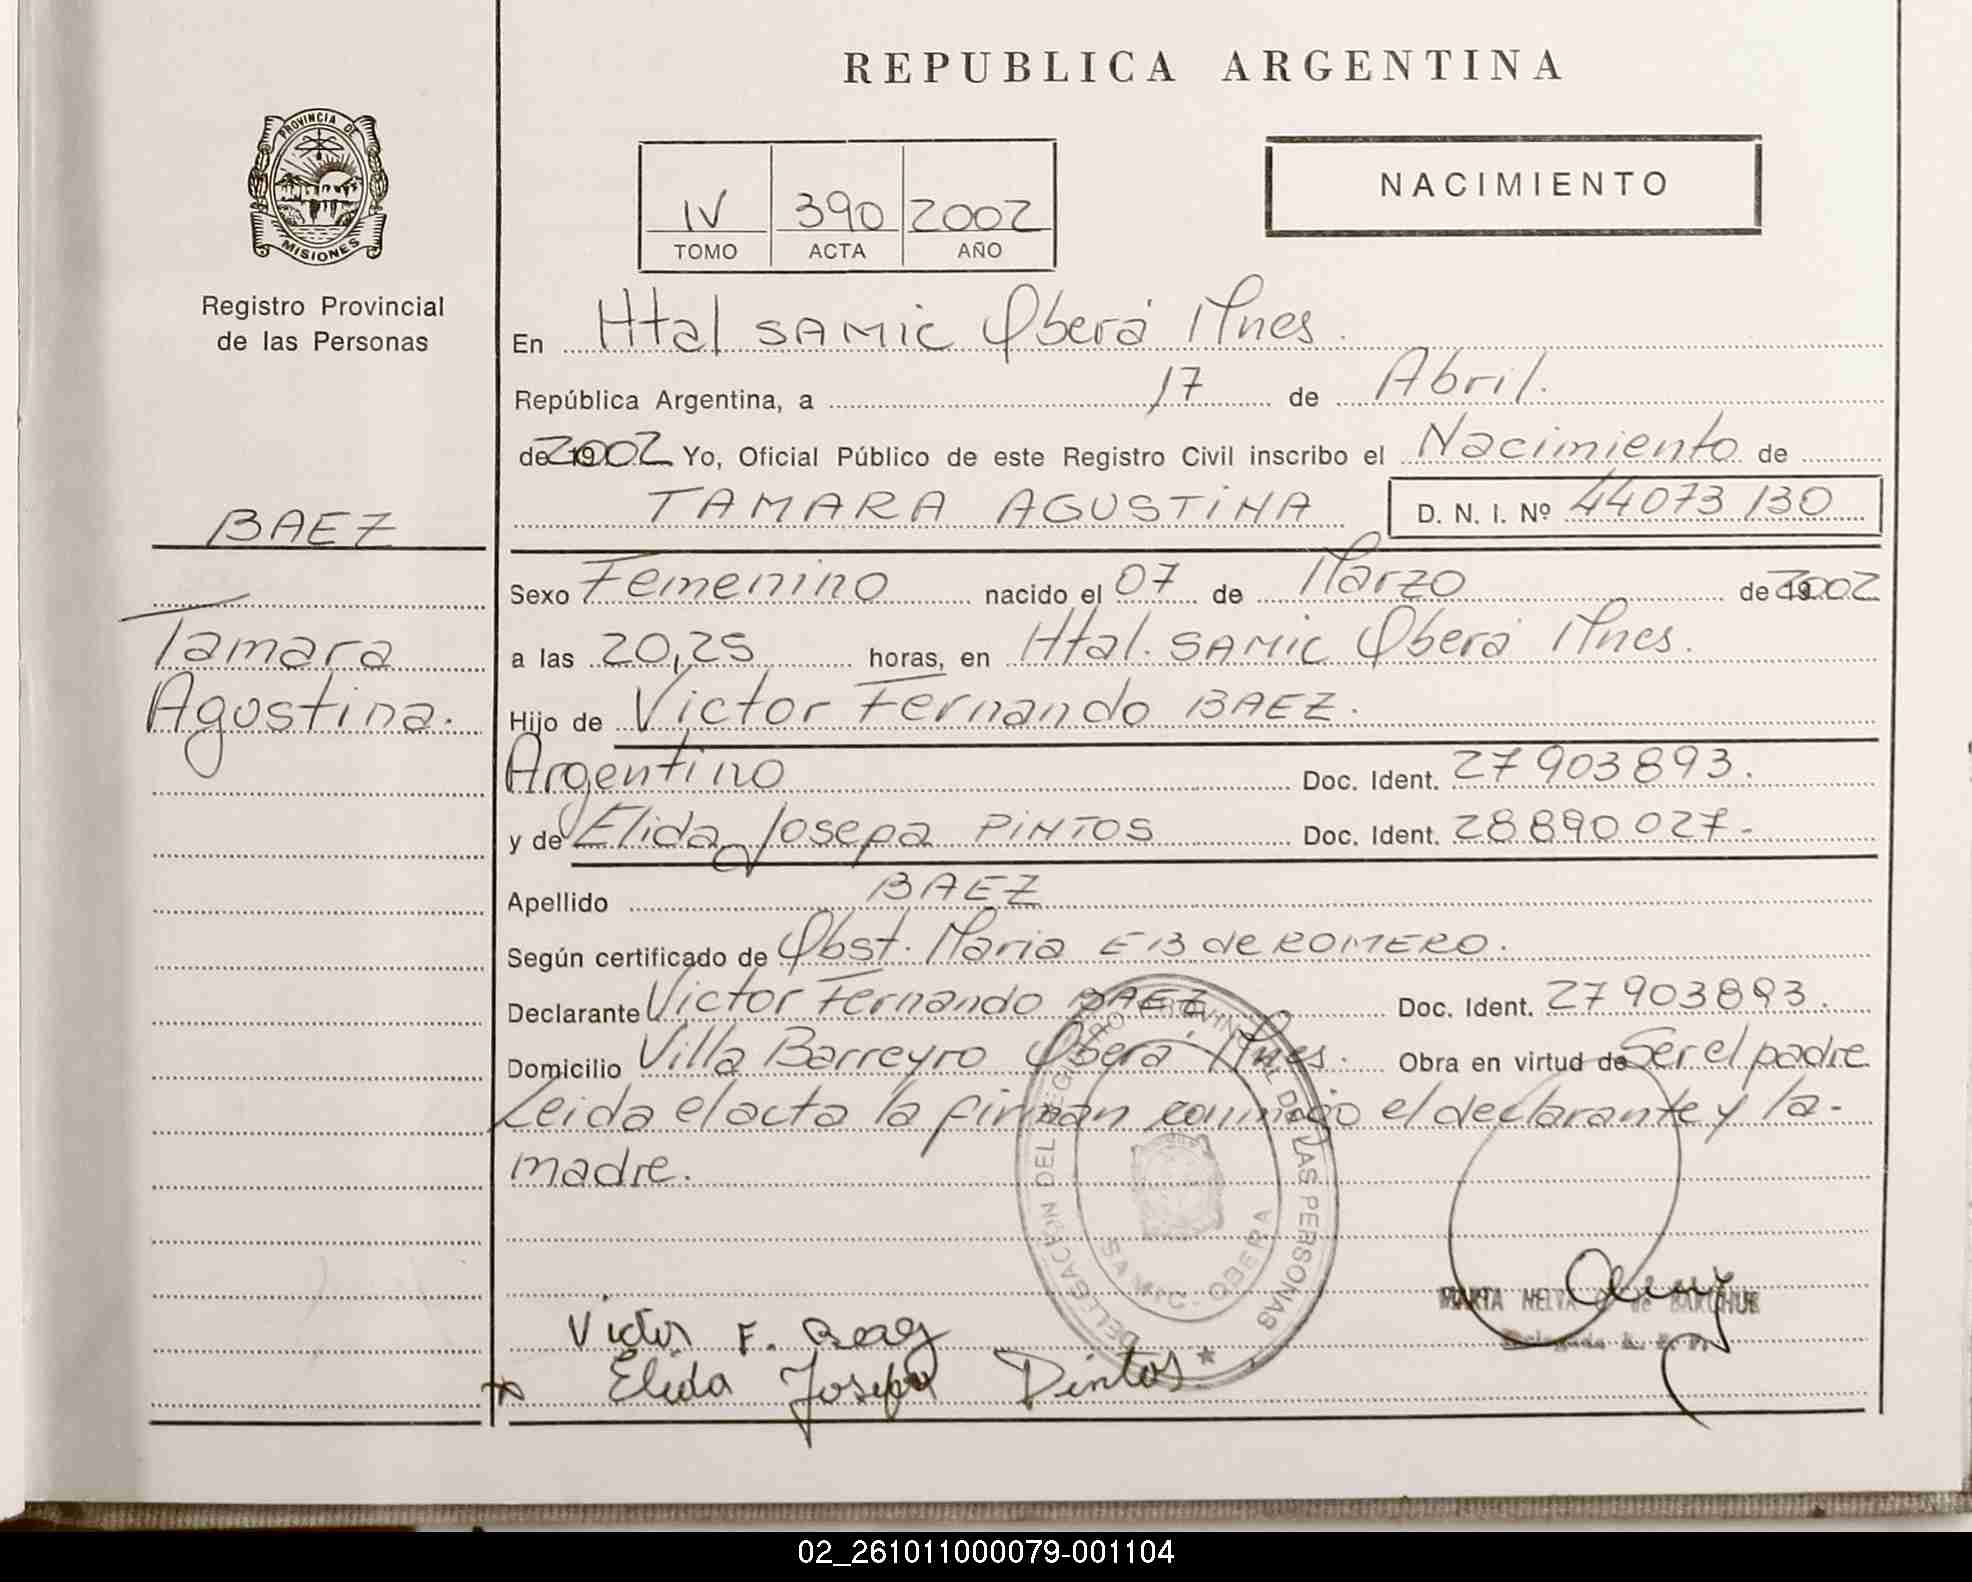 REPUBLICA ARGENTINA
PROVINCIA DE
MISIONES
Registro Provincial
de las Personas
IV 390 2002
TOMO ACTA AÑO
NACIMIENTO
En Htal SAMIC Oberá Mnes.
República Argentina, a 17 de Abril.
de 2002 Yo, Oficial Público de este Registro Civil inscribo el Nacimiento de
TAMARA AGUSTINA D. N. I. Nº 44073130
BAEZ
Tamara
Agustina.
Sexo Femenino nacido el 07 de Marzo de 2002
a las 20,25 horas, en Htal. SAMIC Oberá Mnes.
Hijo de Victor Fernando BAEZ.
Argentino Doc. Ident. 27903893.
y de Elida Josepa PINTOS Doc. Ident. 28.890.027.-
Apellido BAEZ
Según certificado de Obst. Maria E B de ROMERO.
Declarante Victor Fernando BAEZ Doc. Ident. 27903893.
Domicilio Villa Barreyro Oberá Mnes. Obra en virtud de Ser el padre
Leida el acta la firman conmigo el declarante y la-
madre.
DELEGACION DEL REGISTRO PROVINCIAL DE LAS PERSONAS
SAMIC - OBERA
MARTA NELVA de
Victor F. Baez
Elida Josefa Pintos
02_261011000079-001104